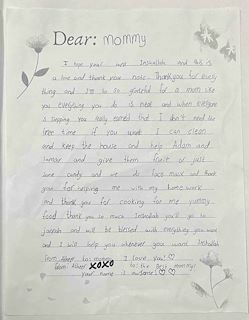 Dear: Mommy
I hope your well Inshallah and this is
a love and thank you note. Thank you for every
thing and I'm so so grateful for a mom like
you everything you do is neat and when everyone
is sleeping you really earned that I don't need the
free time if you want I can clean
and keep the house and help Adam and
and give them fruit or just
some candy and we do and thank
you for helping me with my home work
and thank you for cooking for me yummy
food thank you so much Inshallah you'll go to
jannah and will be blessed with everything you want
and I will help you whenever your want Inshallah
to: mommy I love you! ♡
from: XOXO to: the best mommy!
your name is awesome! ♡ ♡